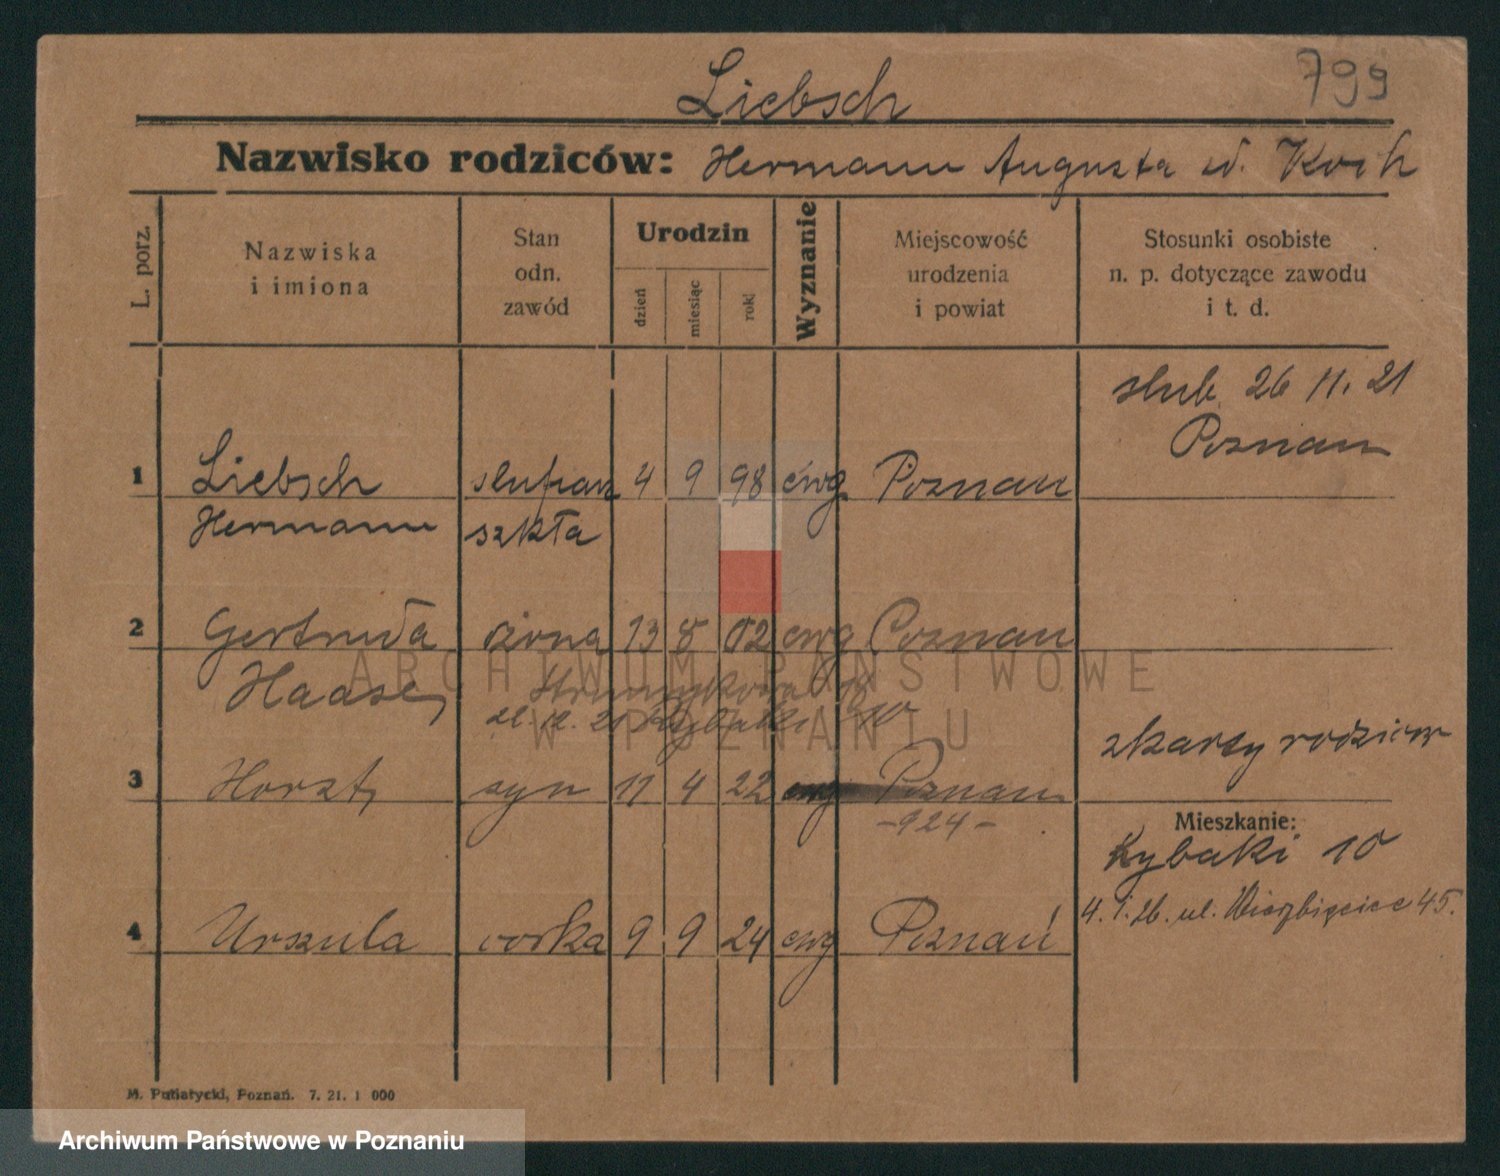 799
Liebsch
Nazwisko rodziców: Hermann Augusta ur. Koch
L. porz.
Nazwiska
i imiona
Stan
odn.
zawód
Urodzin
dzień
miesiąc
rok
Wyznanie
Miejscowość
urodzenia
i powiat
Stosunki osobiste
n. p. dotyczące zawodu
i t. d.
slub 26 11. 21
Poznan
1 Liebsch 4 9 98 ewg Poznan
Hermann szkła
2 Gertruda żona 13 8 02 ewg Poznan
Haase
21.12.21 Rybaki 10
ARCHIWUM PAŃSTWOWE
W POZNANIU
z karty rodzicow
3 Horst syn 11 4 22 ewg Poznan
-924-
Mieszkanie:
Rybaki 10
4. 1. 26. ul. Wierzbięcice 45.
4 Urszula corka 9 9 24 ewg Poznań
M. Putiatycki, Poznań. 7. 21. 1 000
Archiwum Państwowe w Poznaniu